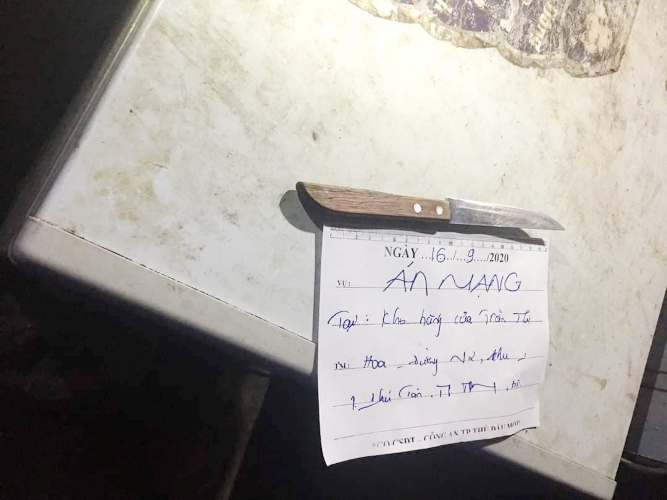 NGÀY...16.../...9.../2020
VỤ: ÁN MẠNG
Tại: Kho hàng của Trần Thị
Hoa, đường N2, khu
CQ CSĐT - CÔNG AN TP THỦ DẦU MỘT